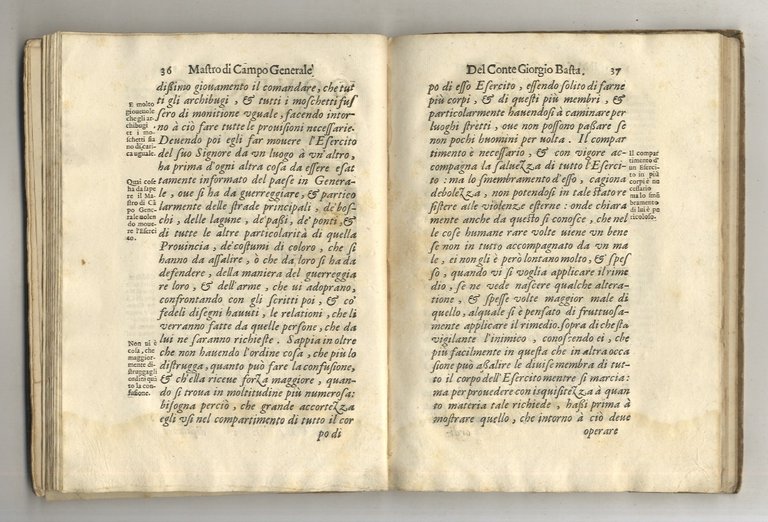 36 Mastro di Campo Generale
dissimo giouamento il comandare, che tut
ti gli archibugi, & tutti i moschetti fus
sero di monitione vguale, facendo intor-
no à ciò fare tutte le prouisioni necessarie.
Deuendo poi egli far mouere l'Esercito
del suo Signore da vn luogo à vn'altro,
hà prima d'ogni altra cosa da essere esat
tamente informato del paese in Genera-
le, oue si hà da guerreggiare, & partico
larmente delle strade principali, de' bos-
chi, delle lagune, de' passi, de' ponti, &
di tutte le altre particolarità di quella
Prouincia, de' costumi di coloro, che si
hanno da assalire, ò che da loro si hà da
defendere, della maniera del guerreggia
re loro, & dell'arme, che vi adoprano,
confrontando con gli scritti poi, & co'
fedeli disegni hauuti, le relationi, che li
verranno fatte da quelle persone, che da
lui ne saranno richieste. Sappia in oltre
che non hauendo l'ordine cosa, che più lo
distrugga, quanto può fare la confusione,
& ch'ella riceue forza maggiore, quan-
do si troua in moltitudine più numerosa:
bisogna perciò, che grande accortezza
egli vsi nel compartimento di tutto il cor
po di
E molto
gioueuole
che gli ar
chibugi
et i mo
schetti sia
no di cari
ca uguale.
Quai cose
hà da sape
re il Ma
stro di Cã
po Gene
rale volen
do moue
re l'Eserci
to.
Non ui è
cosa, che
maggior-
mente di
struggagli
ordini quã
to la con-
fusione.
Del Conte Giorgio Basta. 37
po di esso Esercito, essendo solito di farne
più corpi, & di questi più membri, &
particolarmente hauendosi à caminare per
luoghi stretti, oue non possono passare se
non pochi huomini per volta. Il compar
timento è necessario, & con vigore ac-
compagna la saluezza di tutto l'Eserci-
to: ma lo smembramento d'esso, cagiona
debolezza, non potendosi in tale stato re
sistere alle violenze esterne: onde chiara
mente anche da questo si conosce, che nel
le cose humane rare volte uiene vn bene
se non in tutto accompagnato da vn ma
le, ei non gli è però lontano molto, & spes
so, quando vi si voglia applicare il rime
dio, se ne vede nascere qualche altera-
tione, & spesse volte maggior male di
quello, al quale si è pensato di fruttuosa-
mente applicare il rimedio. sopra di che sta
vigilante l'inimico, conoscendo ei, che
più facilmente in questa che in altra occa
sione può assalire le diuise membra di tut-
to il corpo dell'Esercito mentre si marcia:
ma per prouedere con isquisitezza à quan
to materia tale richiede, hassi prima à
mostrare quello, che intorno à ciò deue
operare
Il compar
timento d'
un Eserci
to in più
corpi è ne
cessario
ma lo smẽ
bramento
di lui è pe
ricoloso.